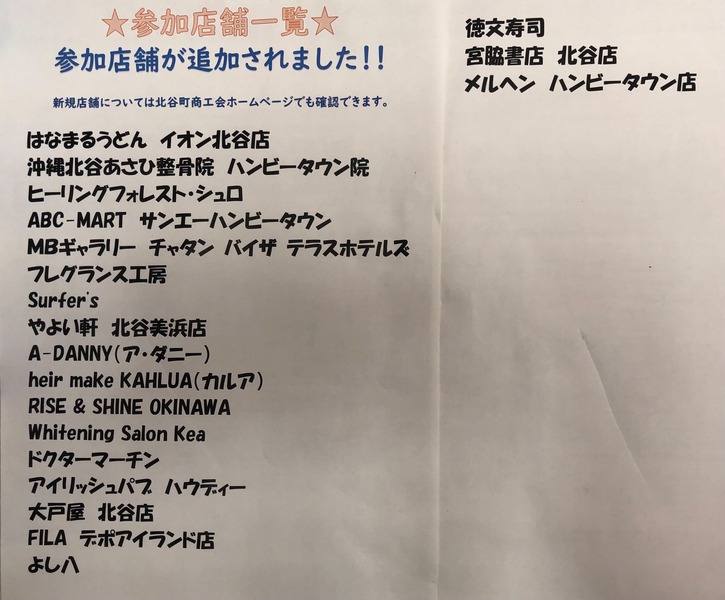 ★参加店舗一覧★
参加店舗が追加されました!!
新規店舗については北谷町商工会ホームページでも確認できます。
はなまるうどん イオン北谷店
沖縄北谷あさひ整骨院 ハンビータウン院
ヒーリングフォレスト・シュロ
ABC-MART サンエーハンビータウン
MBギャラリー チャタン バイザ テラスホテルズ
フレグランス工房
Surfer's
やよい軒 北谷美浜店
A-DANNY(ア・ダニー)
heir make KAHLUA(カルア)
RISE & SHINE OKINAWA
Whitening Salon Kea
ドクターマーチン
アイリッシュパブ ハウディー
大戸屋 北谷店
FILA デポアイランド店
よし八
徳文寿司
宮脇書店 北谷店
メルヘン ハンビータウン店